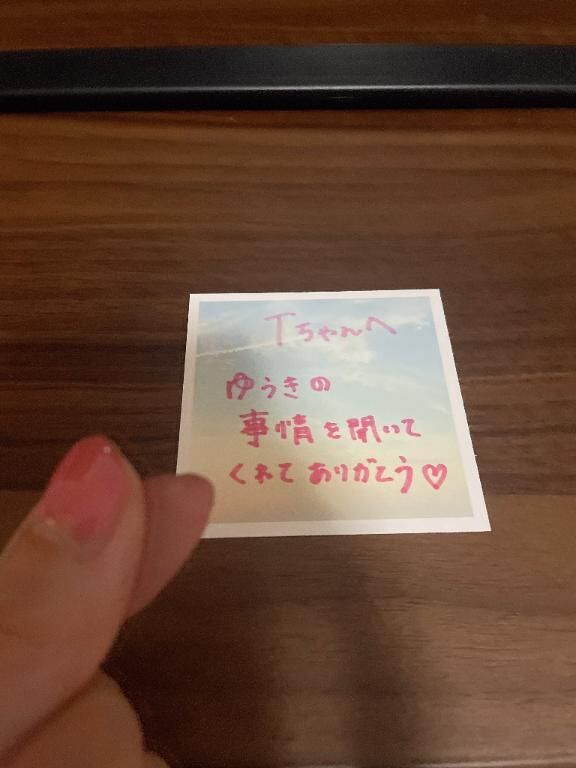 Tちゃんへ
ゆうきの
事情を聞いて
くれてありがとう♡